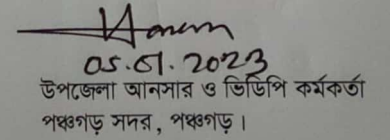 05.01.2023
উপজেলা আনসার ও ভিডিপি কর্মকর্তা
পঞ্চগড় সদর, পঞ্চগড়।